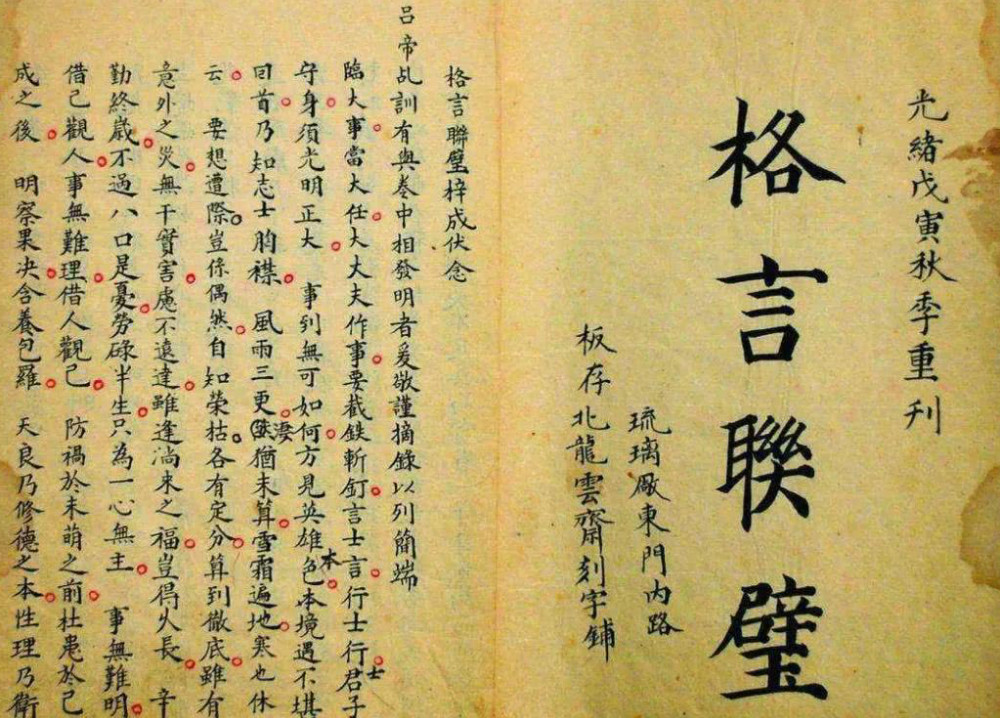 光緒戊寅秋季重刊
格言聯璧
琉璃厰東門内路
板存北龍雲齋刻字鋪
格言聯璧梓成伏念
呂帝乩訓有與卷中相發明者爰敬謹摘錄以列簡端
臨大事當大任大大夫作事要截鉄斬釘言士言行士行士君子
守身須光明正大 事到無可如何方見英雄本色本境遇不堪
回首乃知志士胸襟 風雨三更凄猶未算雪霜遍地寒也休
云 要想遭際豈係偶然自知榮枯各有定分算到徹底雖有
意外之災無干實害慮不遠達雖逢淌來之福豈得久長 辛
勤終歲不過八口是憂勞碌半生只為一心無主 事無難明
借己觀人事無難理借人觀己 防禍於未萌之前杜患於己
成之後 明察果决含養包羅 天良乃修德之本性理乃衛